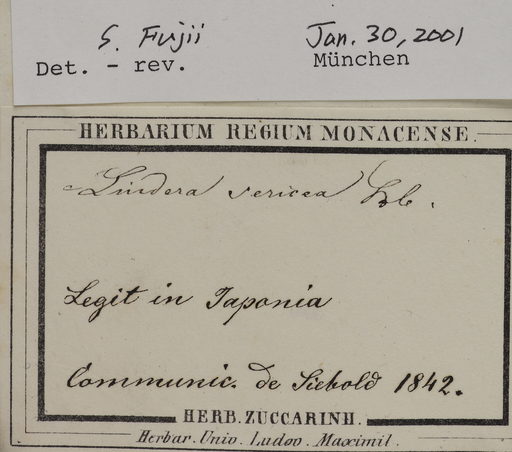 S. Fujii Jan. 30, 2001
Det. - rev. München
HERBARIUM REGIUM MONACENSE.
Lindera sericea Bl.
Legit in Japonia
Communic. de Siebold 1842.
HERB. ZUCCARINII.
Herbar. Univ. Ludov. Maximil.